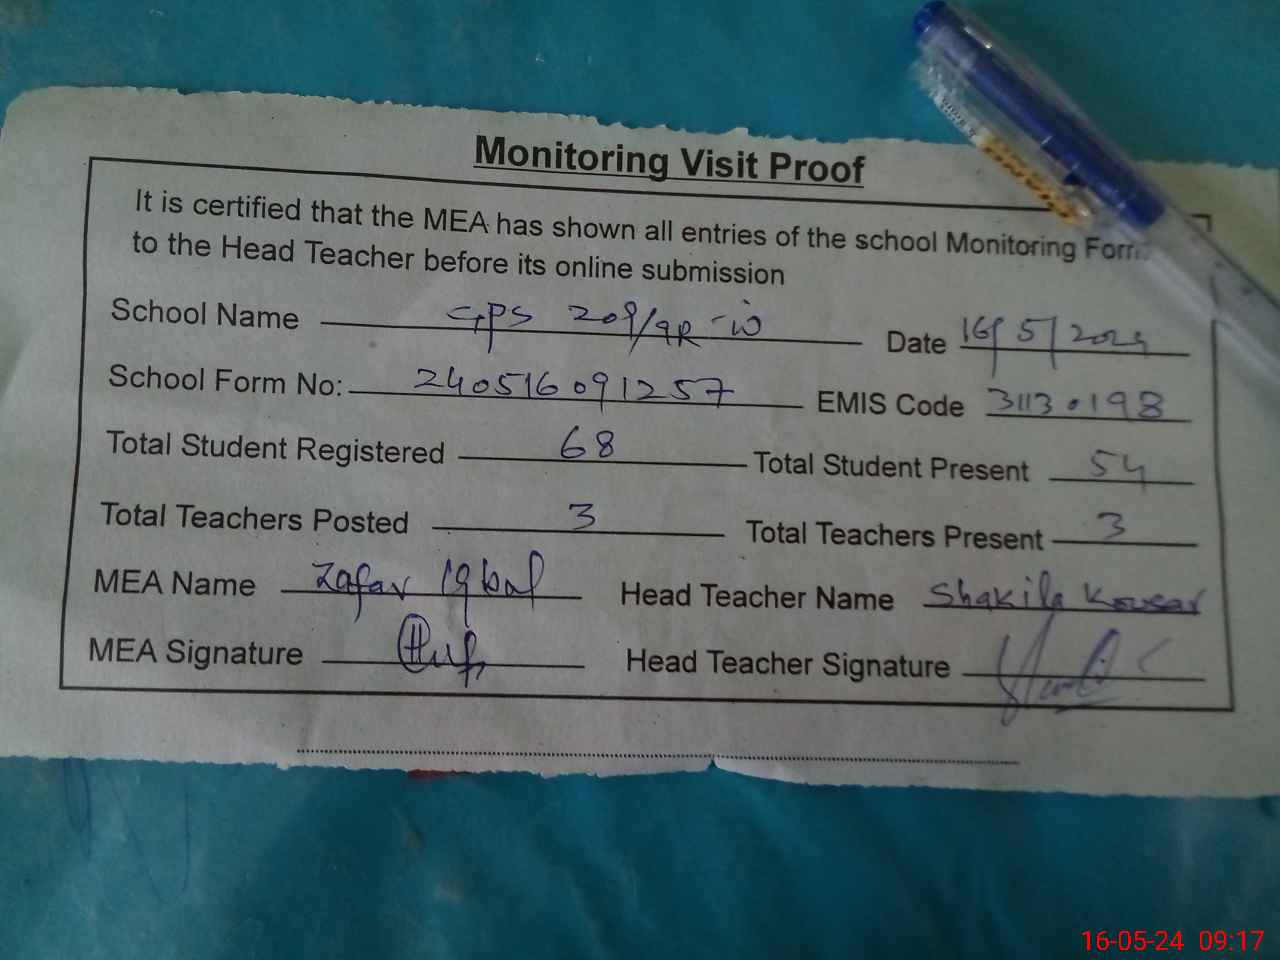 Monitoring Visit Proof
It is certified that the MEA has shown all entries of the school Monitoring Form
to the Head Teacher before its online submission
School Name GPS 209/9R-W Date 16/5/2024
School Form No: 240516091257 EMIS Code 31130198
Total Student Registered 68 Total Student Present 54
Total Teachers Posted 3 Total Teachers Present 3
MEA Name Zafar Iqbal Head Teacher Name Shakila Kousar
MEA Signature Head Teacher Signature
16-05-24 09:17